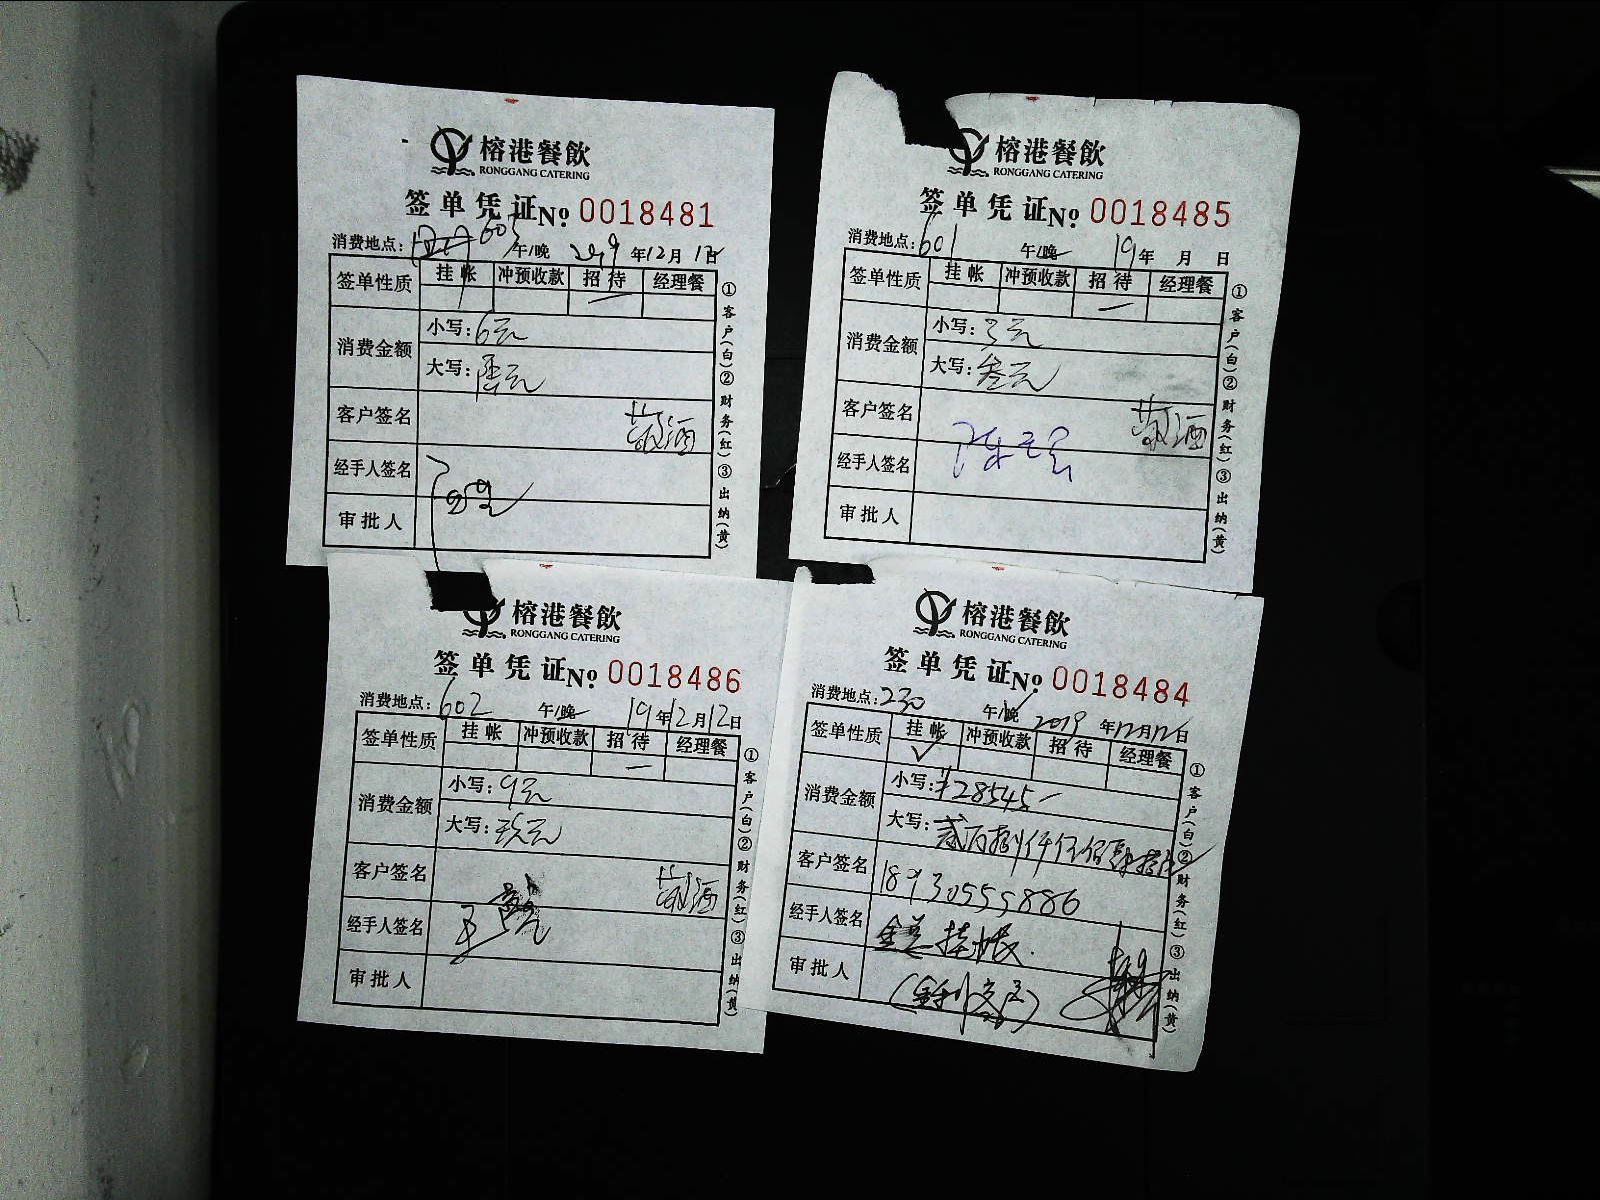 榕港餐飲
RONGGANG CATERING
签单凭证 No. 0018481
消费地点: 603 午/晚 2019年12月12日
签单性质 挂帐 冲预收款 招待 经理餐
消费金额 小写: 6元
大写: 陆元
客户签名 敬酒
经手人签名
审批人
①客户(白)②财务(红)③出纳(黄)
榕港餐飲
RONGGANG CATERING
签单凭证 No. 0018485
消费地点: 601 午/晚 19年 月 日
签单性质 挂帐 冲预收款 招待 经理餐
消费金额 小写: 3元
大写: 叁元
客户签名 敬酒
经手人签名
审批人
①客户(白)②财务(红)③出纳(黄)
榕港餐飲
RONGGANG CATERING
签单凭证 No. 0018486
消费地点: 602 午/晚 19年12月12日
签单性质 挂帐 冲预收款 招待 经理餐
消费金额 小写: 9元
大写: 玖元
客户签名 敬酒
经手人签名
审批人
①客户(白)②财务(红)③出纳(黄)
榕港餐飲
RONGGANG CATERING
签单凭证 No. 0018484
消费地点: 230 午/晚 2019年12月12日
签单性质 挂帐 冲预收款 招待 经理餐
✓
消费金额 小写: ¥28545-
大写: 贰万捌仟伍佰肆拾伍
客户签名 18930555886
经手人签名 挂帐
审批人
①客户(白)②财务(红)③出纳(黄)